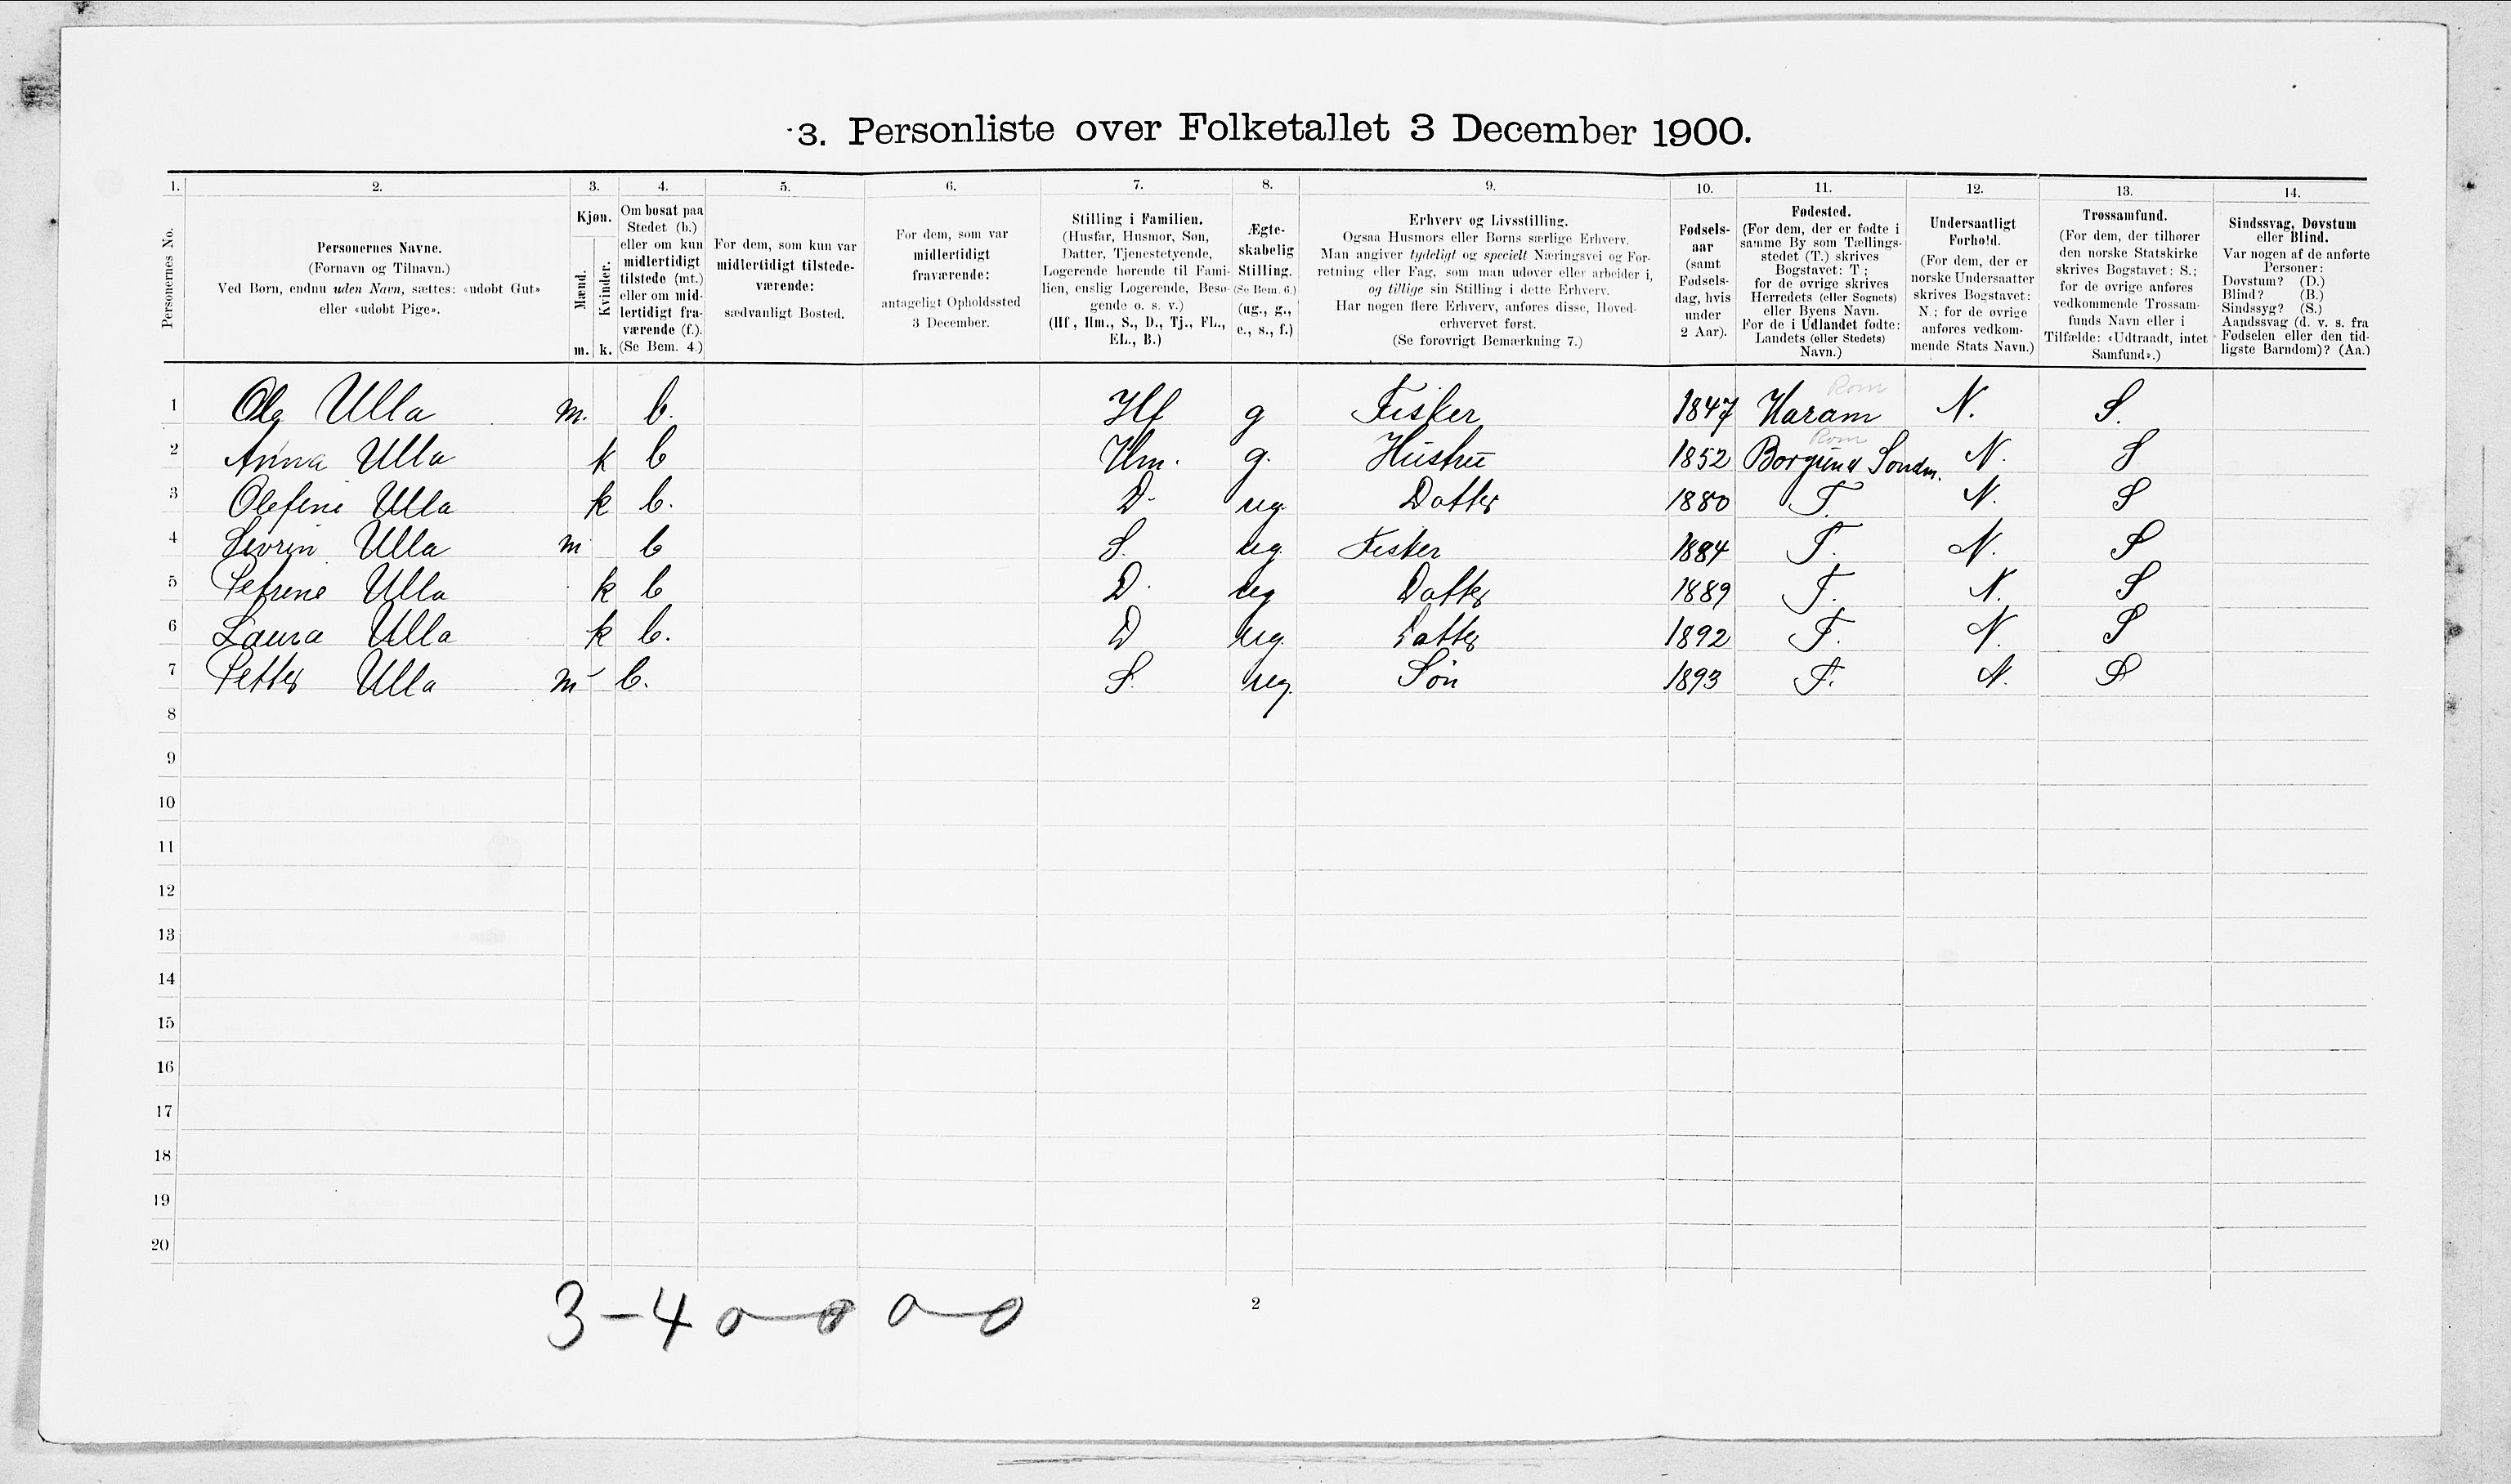 3. Personliste over Folketallet 3 December 1900.
1. 2. 3. 4. 5. 6. 7. 8. 9. 10. 11. 12. 13. 14.
Personernes No.
Personernes Navne.
(Fornavn og Tilnavn.)
Ved Børn, endnu uden Navn, sættes: «udøbt Gut»
eller «udøbt Pige».
Kjøn.
Mænd.
Kvinder.
m. k.
Om bosat paa
Stedet (b.)
eller om kun
midlertidigt
tilstede (mt.)
eller om mid-
lertidigt fra-
værende (f.).
(Se Bem. 4.)
For dem, som kun var
midlertidigt tilstede-
værende:
sædvanligt Bosted.
For dem, som var
midlertidigt
fraværende:
antageligt Opholdssted
3 December.
Stilling i Familien.
(Husfar, Husmor, Søn,
Datter, Tjenestetyende,
Logerende hørende til Fami-
lien, enslig Logerende, Besø-
gende o. s. v.)
(Hf., Hm., S., D., Tj., FL.,
EL., B.)
Ægte-
skabelig
Stilling.
(Se Bem. 6.)
(ug., g.,
e., s., f.)
Erhverv og Livsstilling.
Ogsaa Husmors eller Børns særlige Erhverv.
Man angiver tydeligt og specielt Næringsvei og For-
retning eller Fag, som man udøver eller arbeider i,
og tillige sin Stilling i dette Erhverv.
Har nogen flere Erhverv, anføres disse, Hoved-
erhvervet først.
(Se forøvrigt Bemærkning 7.)
Fødsels-
aar
(samt
Fødsels-
dag, hvis
under
2 Aar).
Fødested.
(For dem, der er fødte i
samme By som Tællings-
stedet (T.) skrives
Bogstavet: T;
for de øvrige skrives
Herredets (eller Sognets)
eller Byens Navn.
For de i Udlandet fødte:
Landets (eller Stedets)
Navn.)
Undersaatligt
Forhold.
(For dem, der er
norske Undersaatter
skrives Bogstavet:
N.; for de øvrige
anføres vedkom-
mende Stats Navn.)
Trossamfund.
(For dem, der tilhører
den norske Statskirke
skrives Bogstavet: S.;
for de øvrige anføres
vedkommende Trossam-
funds Navn eller i
Tilfælde: «Udtraadt, intet
Samfund».)
Sindssvag, Døvstum
eller Blind.
Var nogen af de anførte
Personer:
Døvstum? (D.)
Blind? (B.)
Sindssyg? (S.)
Aandssvag (d. v. s. fra
Fødselen eller den tid-
ligste Barndom)? (Aa.)
Rom
1 Ola Ulla m. b. Hf g Fisker 1847 Haram N. S.
Rom
2 Anna Ulla k b Hm. g. Hustru 1852 Borgund Sondm. N. S
3 Olefine Ulla k b. D. ug. Datter 1880 T. N. S
4 Sivrin Ulla m b S. ug. Fisker 1884 T. N. S
5 Petrine Ulla k b D. ug Datter 1889 T. N. S
6 Laura Ulla k b. D ug. Datter 1892 T. N. S
7 Petter Ulla m b. S. ug. Søn 1893 T. N. S
8
9
10
11
12
13
14
15
16
17
18
19
20
3-4 0-0 0-0
2